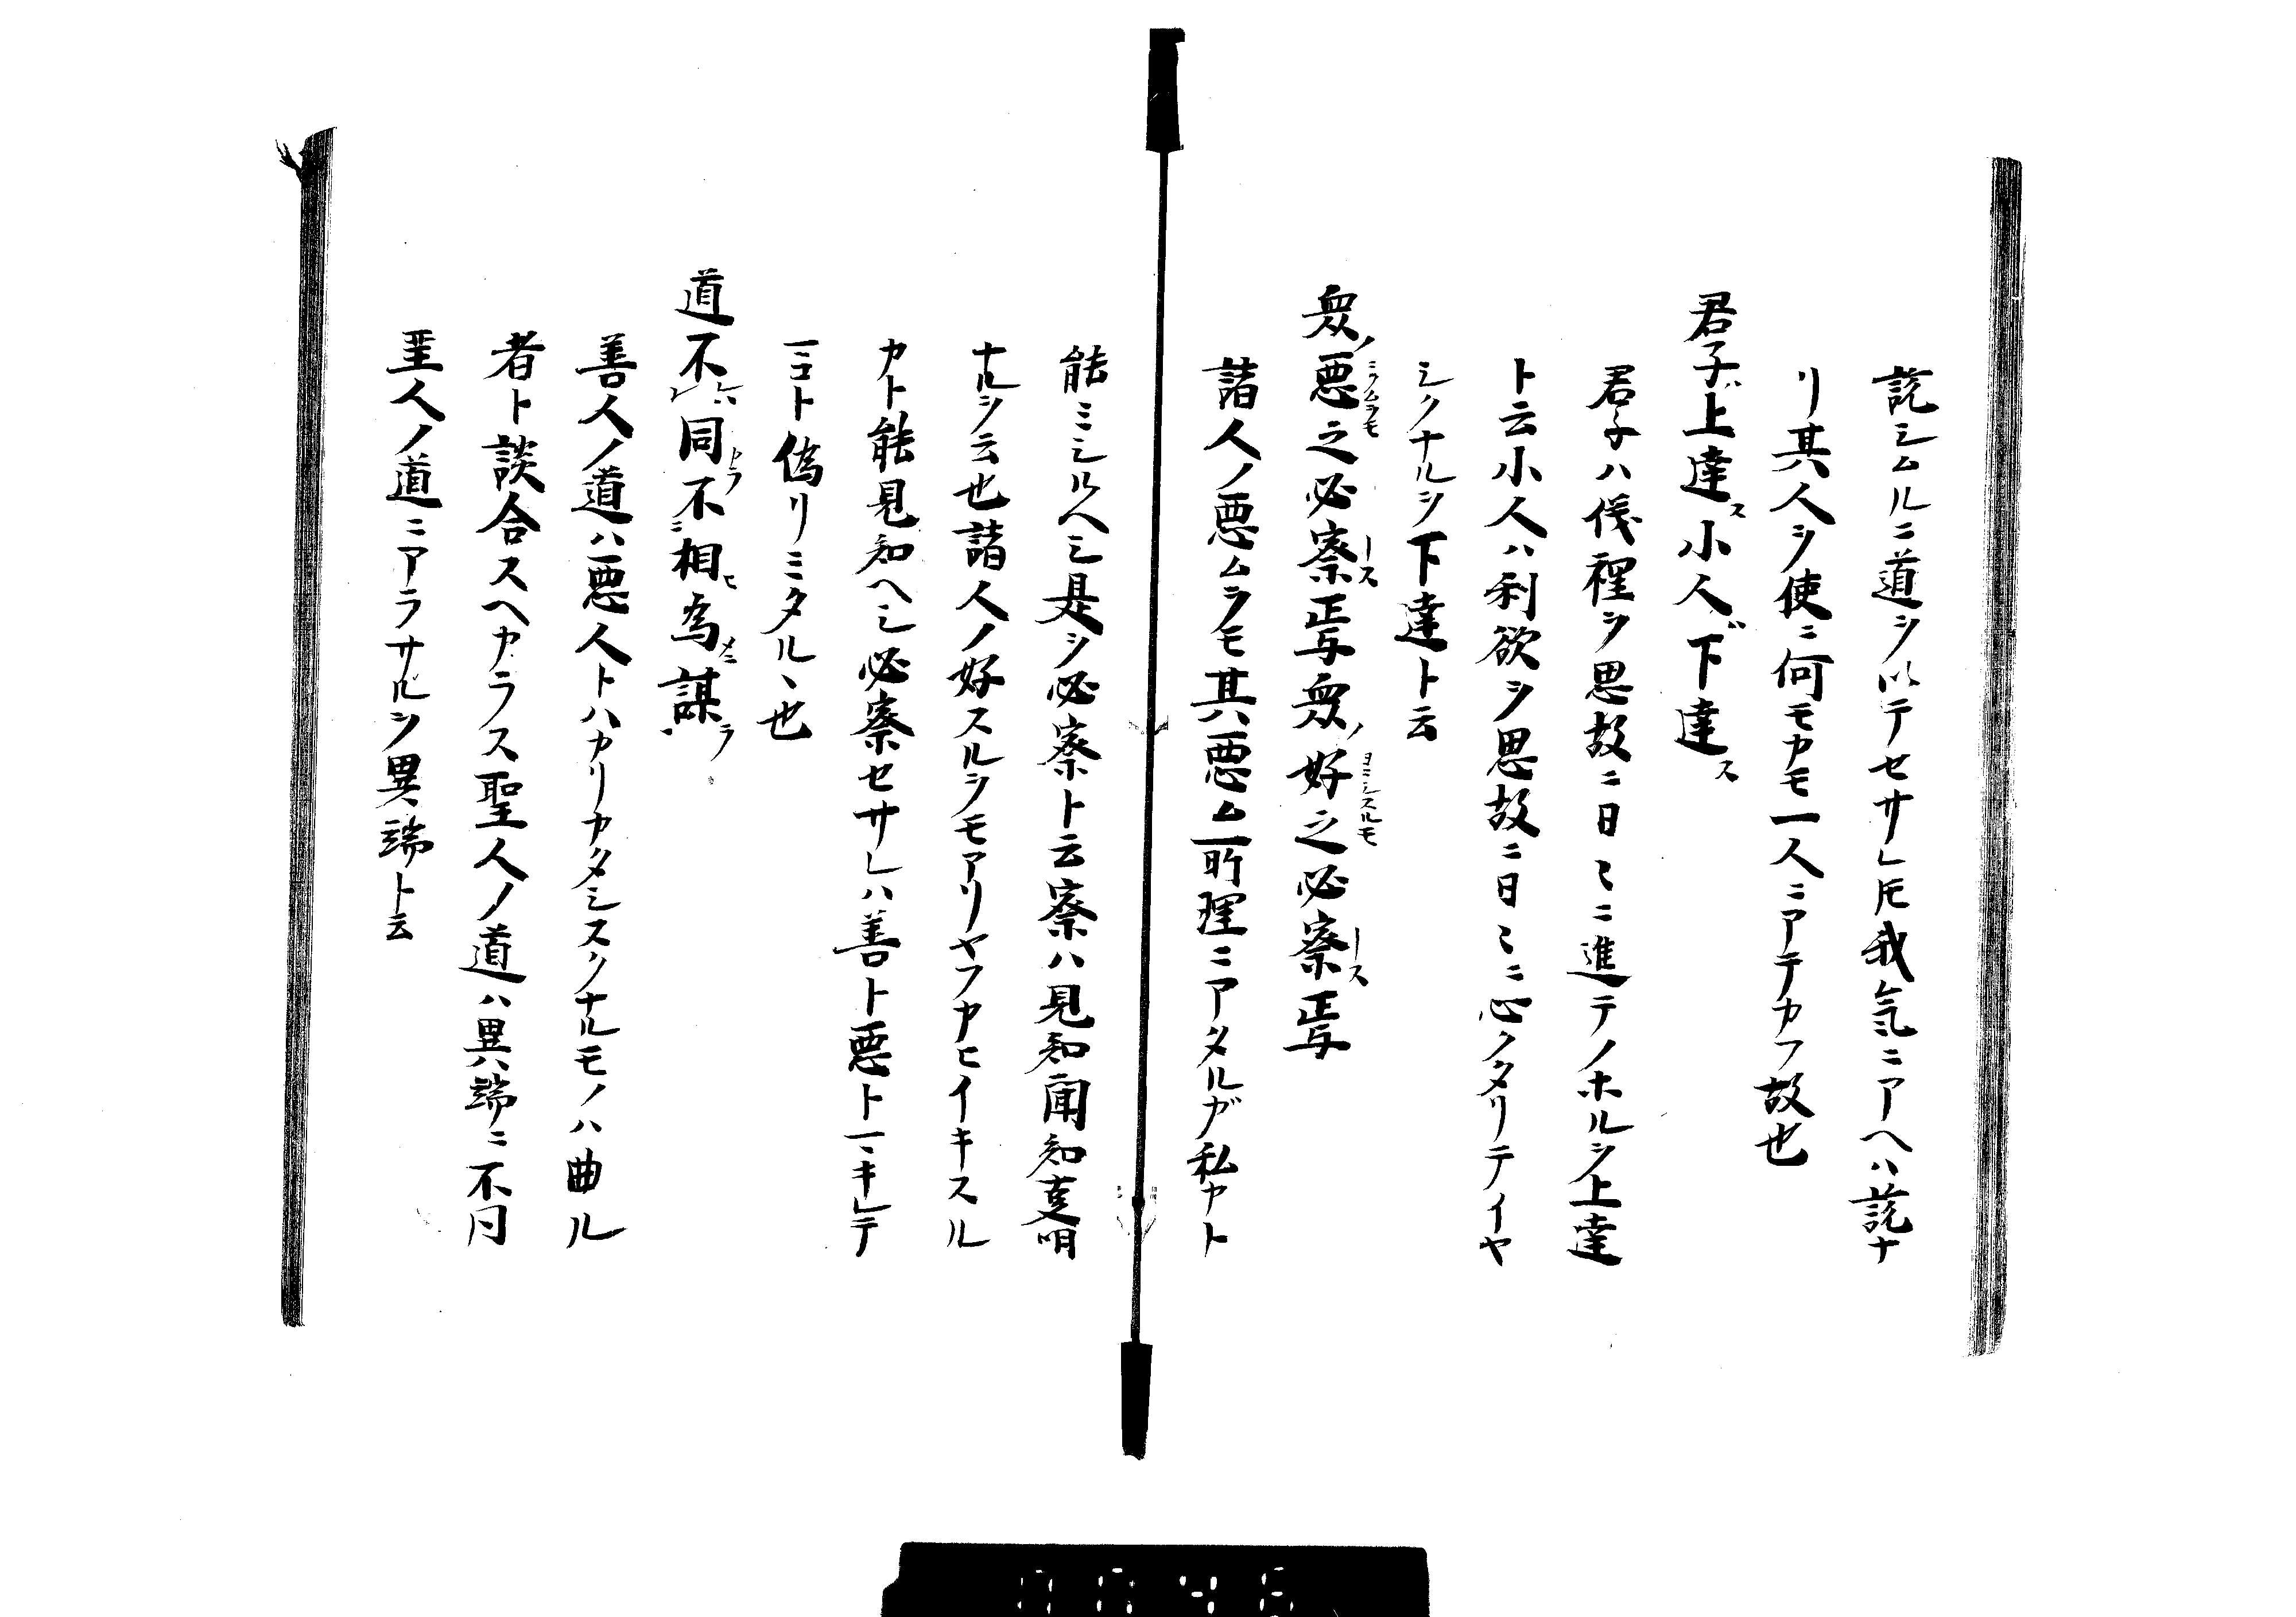 説シムルニ道ヲ以テセサレ𪜈我気ニアヘハ説ナ
リ其人ヲ使ニ何モカモ一人ニアテカフ故也
君子ハ上達ス小人ハ下達ス
君子ハ義理ヲ思故ニ日〻ニ進テノホルヲ上達
ト云小人ハ利欲ヲ思故ニ日〻ニ心クタリテイヤ
シクナルヲ下達ト云
衆ノ悪ミクムヲモ之必察ース焉与衆ノ好ヨミシスルモ之必察ース焉与
諸人ノ悪ムヲモ其悪ム所理ニアタルガ私カト
能ミシルヘシ是ヲ必察ト云察ハ見知聞知支明
ナルヲ云也諸人ノ好スルヲモアリヤフカヒイキスル
カト能見知ヘシ必察セサレハ善ト悪トマキレテ
マコト偽リミタルヽ也
道不同カラ不相ヒ為メニ謀ラ
善人ノ道ハ悪人トハカリカタシスクナルモノハ曲ル
者ト談合スヘカラス聖人ノ道ハ異端ニ不同
聖人ノ道ニアラサルヲ異端ト云